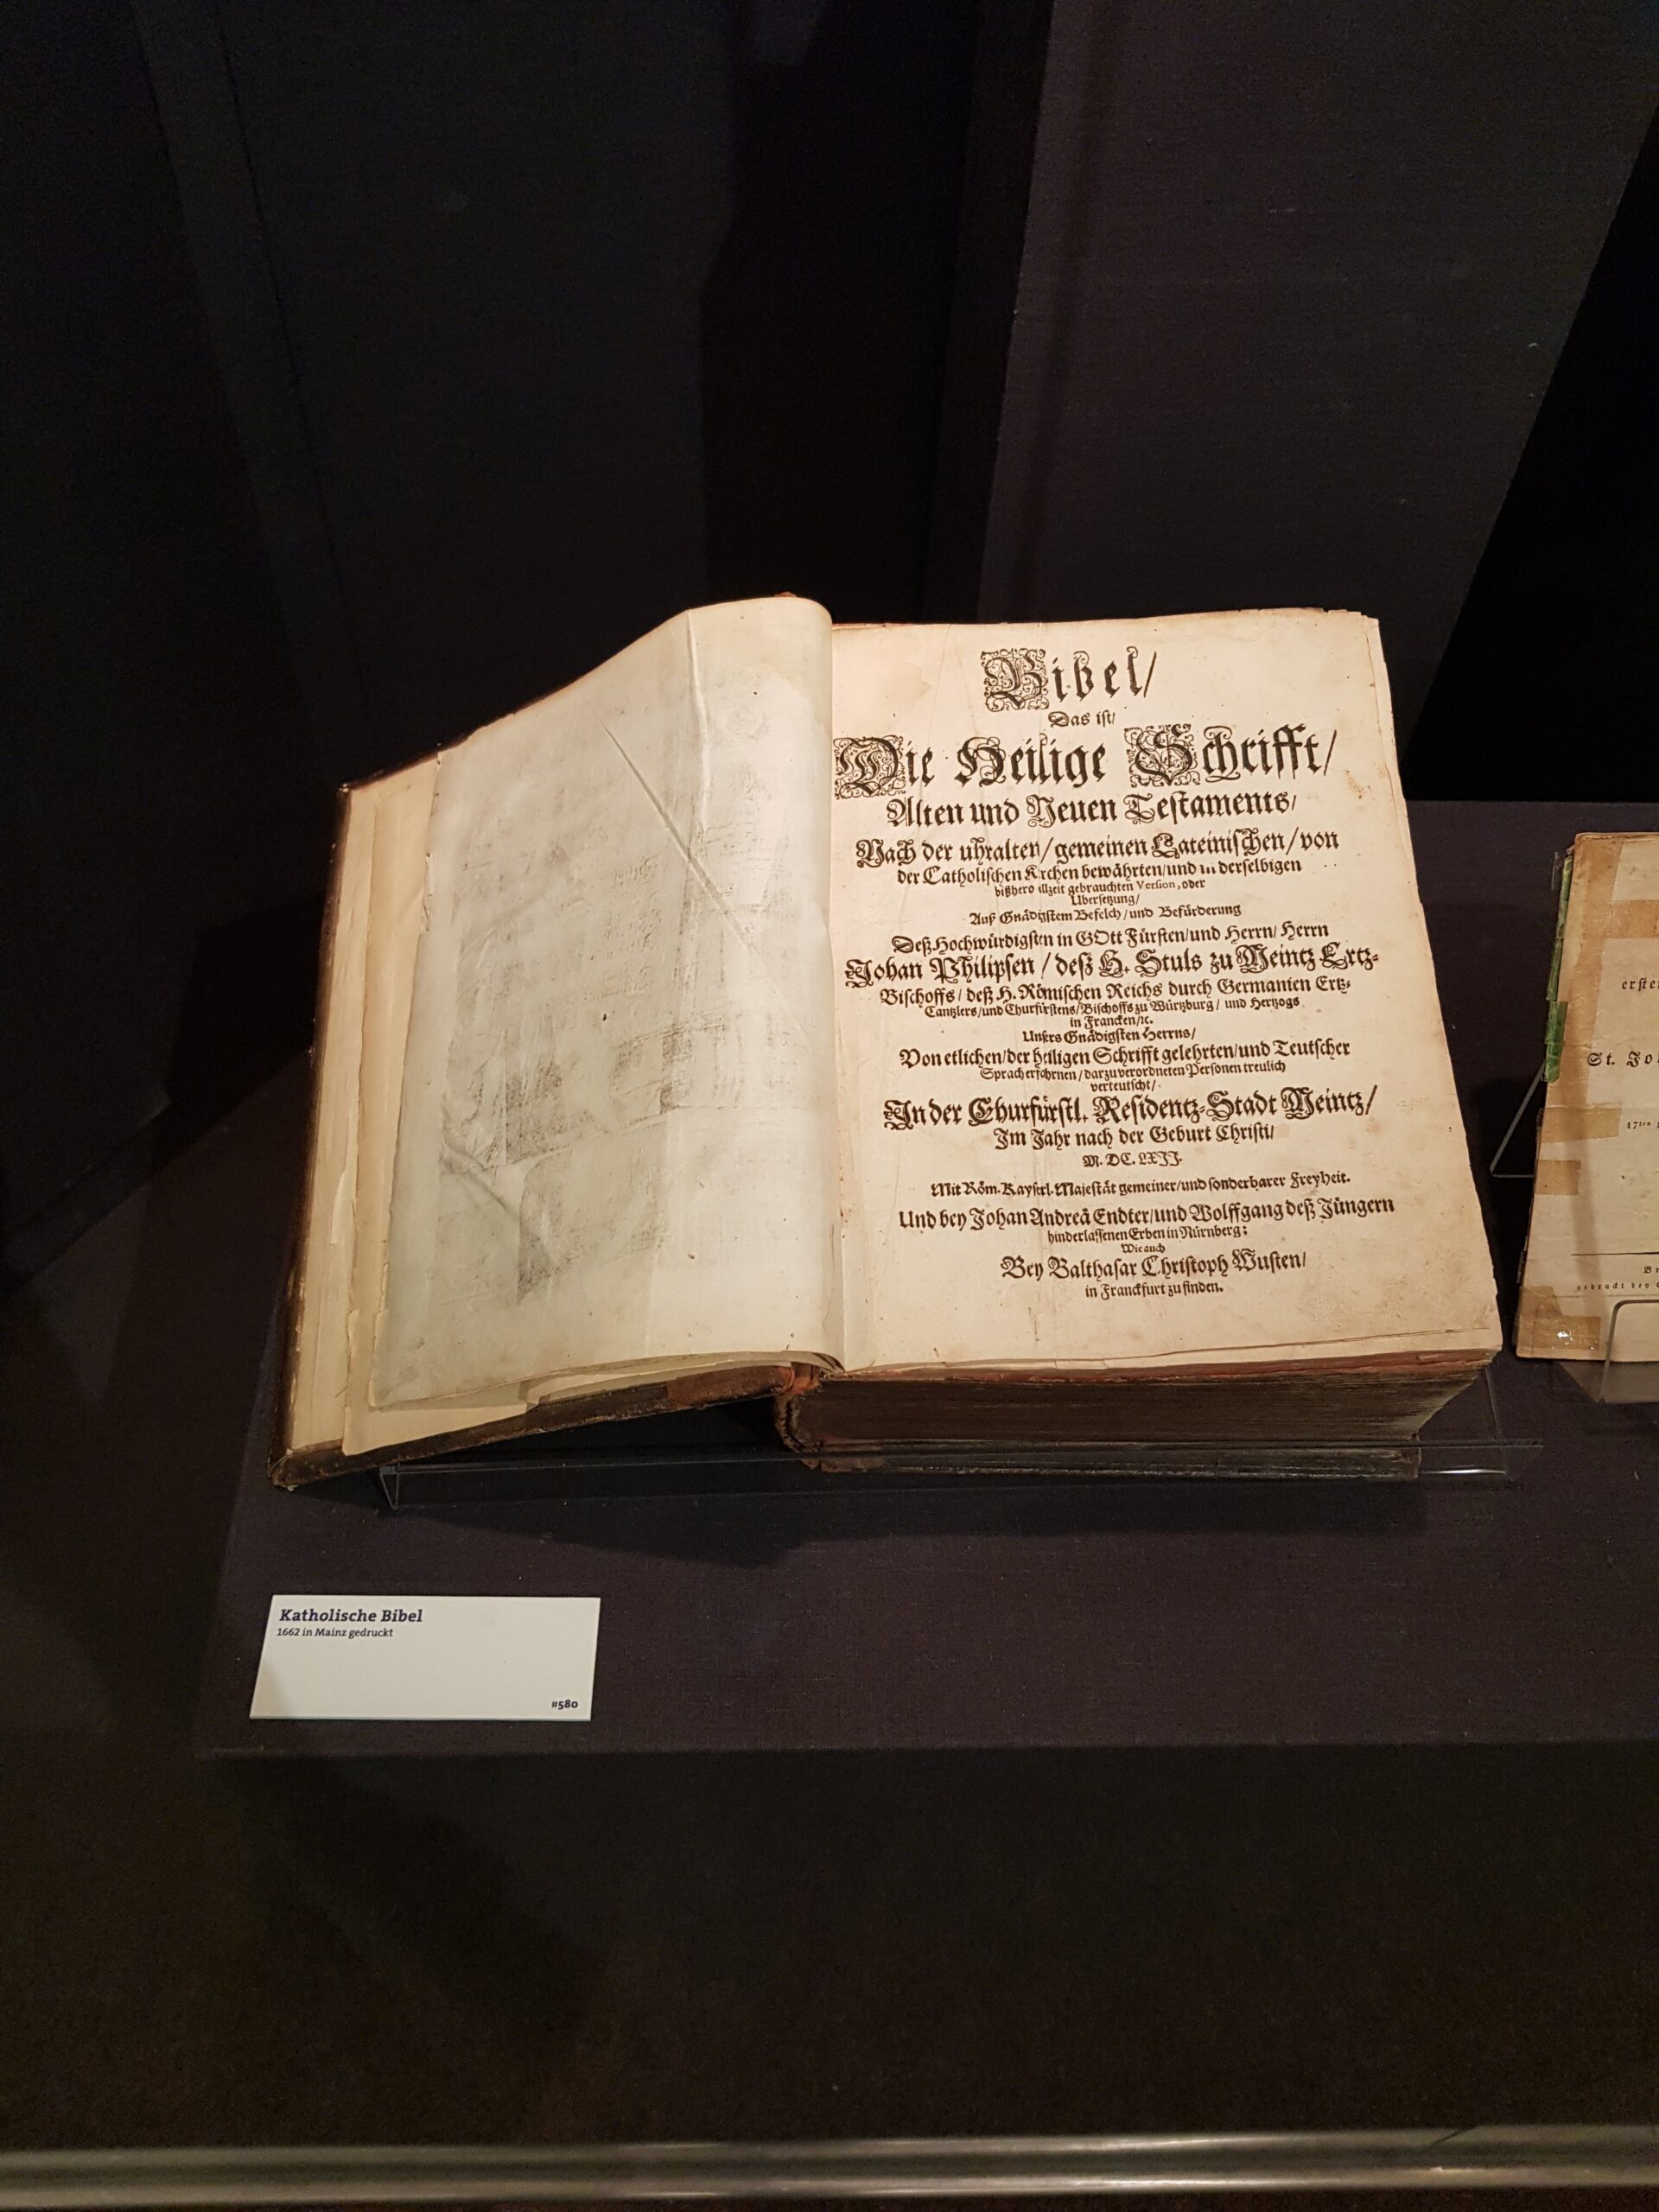 Bibel/
Das ist/
Die Heilige Schrifft/
Alten und Neuen Testaments/
Nach der uhralten/ gemeinen Lateinischen/ von
der Catholischen Kirchen bewährten/ und in derselbigen
bißhero allzeit gebrauchten Version, oder
Ubersetzung/
Auß Gnädigstem Befelch/ und Befürderung
Deß Hochwürdigsten in GOtt Fürsten/ und Herrn/ Herrn
Johan Philipsen/ deß H. Stuls zu Meintz Ertz-
Bischoffs/ deß H. Römischen Reichs durch Germanien Ertz-
Cantzlers/ und Churfürstens/ Bischoffs zu Würtzburg/ und Hertzogs
in Francken/ ꝛc.
Unsers Gnädigsten Herrns/
Von etlichen/ der heiligen Schrifft gelehrten/ und Teutscher
Sprach erfahrnen/ darzu verordneten Personen treulich
verteutscht/
In der Churfürstl. Residentz-Stadt Meintz/
Im Jahr nach der Geburt Christi/
M. DC. LXII.
Mit Röm. Kayserl. Majestät gemeiner/ und sonderbarer Freyheit.
Und bey Johan Andreä Endter/ und Wolffgang deß Jüngern
hinderlassenen Erben in Nürnberg:
Wie auch
Bey Balthasar Christoph Wusten/
in Franckfurt zu finden.
Katholische Bibel
1662 in Mainz gedruckt
#580
St.
17ten
gedruckt bey